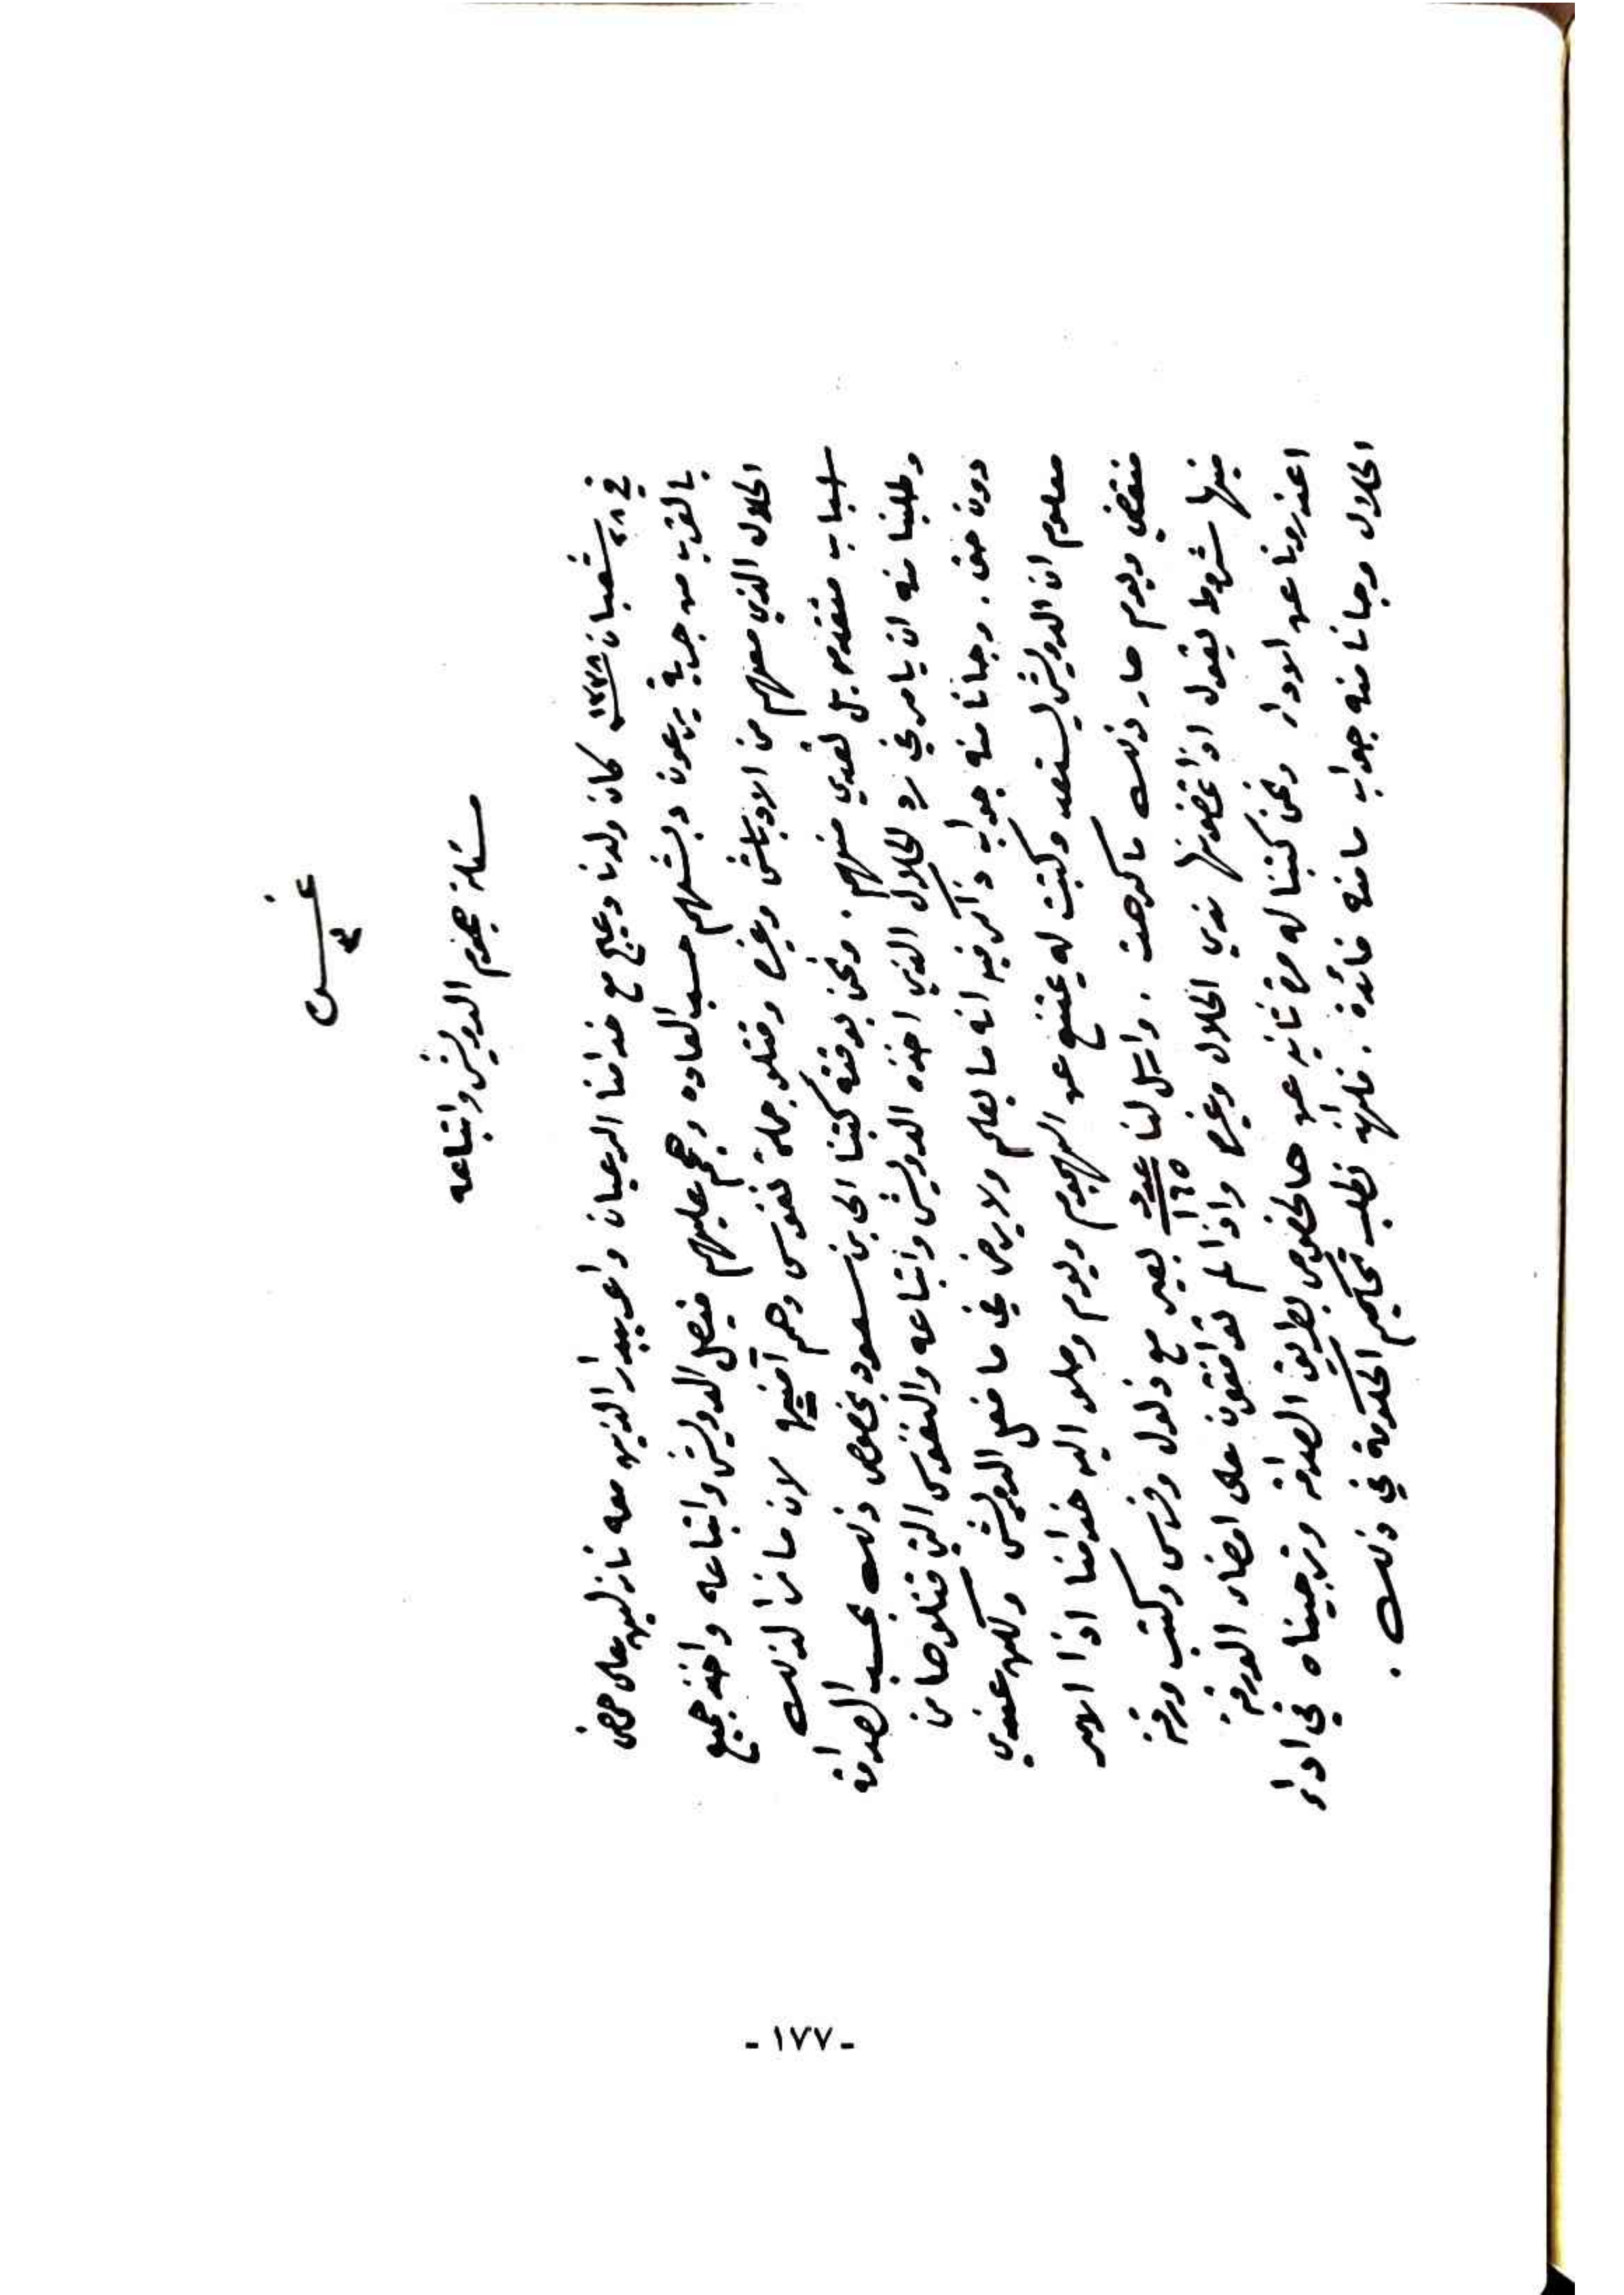 مسئلة هجوم الدويش واتباعه
في ٢٨ شعبان ١٣٣٨ كان ولدنا دعيج مع خدامنا الرعيان واعريبدار الذين معه نازلين على حمض
بالقرب من جرية يرعون دبشهم حسب العاده وهجم عليهم فيصل الدويش واتباعه واخذ جميع
الحلال الذي معهم من الاوباش وغيره وقتلو جملة نفوس وهم آمنين لان ما فرا لذلك
اسباب متقدمه بل تعدي منهم . ونحن بوقته كتبنا الى بن سعود بخصوص ذلك بحسب الصداقة
وطلبنا منه ان يامر في رد الحلال الذي اخذه الدويش واتباعه والنفوس التي قتلو من
دون حق . وجانا منه جواب ذاكر فيه انه ما يعلم ولا يرضى في ما فعل الدويش ولكن عندي
معلوم ان الدويش ليستعد وكتبت له يمتنع عن الهجوم ويوم وصلو اليه خدامنا اذا الامر
منقضي ويوم صار ذلك ما كرهت . وارسل لنا عدد ١٦٥ بعير مع ذلول وفرس وكتب ورقة
فيها شروط يقول اذا تمضونها نودي الحلال وغيره واذا لم توافقون على امضاء الورقة
اعذرونا عن الاداء ونحن كتبنا له مرة ثانيه عن هالخصوص بطريق الصداقه وترجيناه في اداء
الحلال وجانا منه جواب ما منه فائدة . فلهذا نطلب تحكيم الحكومة في ذلك .
- ١٧٧ -